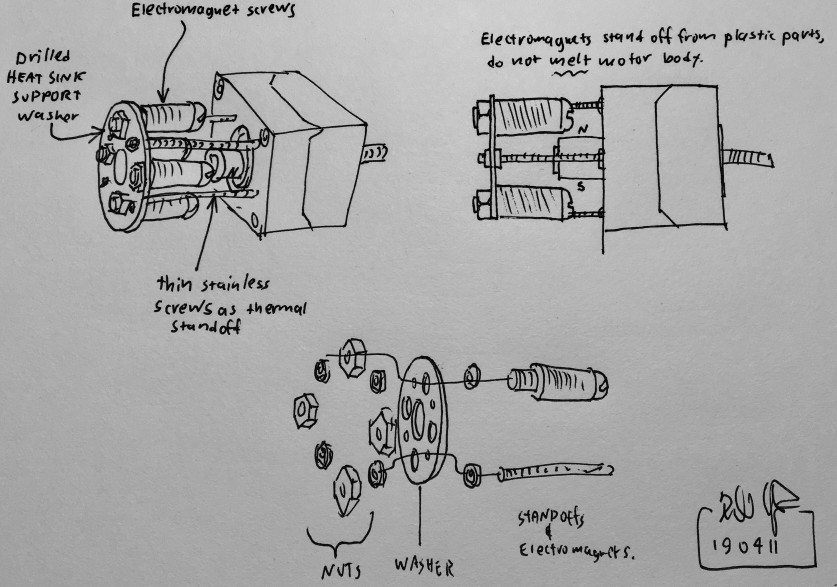 Electromagnet screws
Drilled
HEAT SINK
SUPPORT
Washer
Electromagnets stand off from plastic parts,
do not melt motor body.
N
S
N
thin stainless
screws as thermal
standoff
NUTS
WASHER
STANDOFFS
&
Electromagnets.
190411